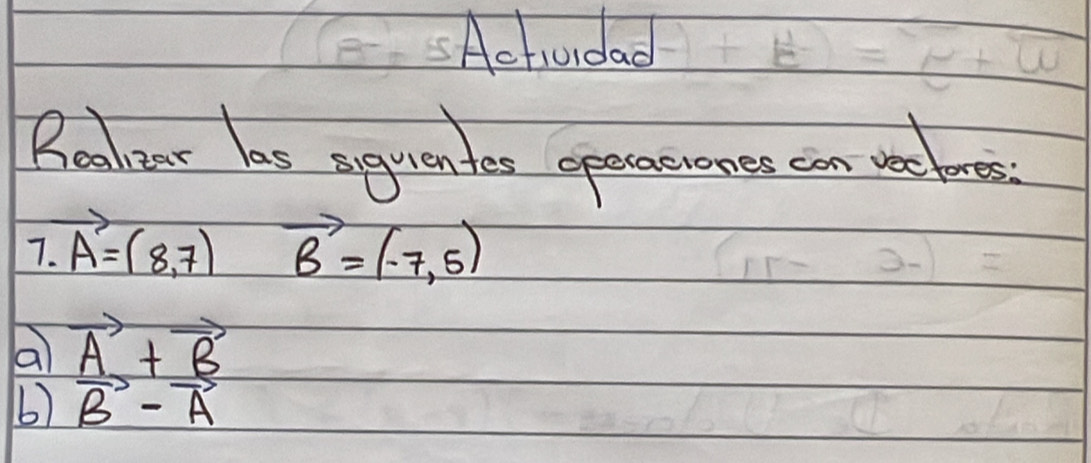 Actividad
Realizar las siguientes operaciones con vectores:
7. A⃗=(8,7) B⃗=(-7,5)
a) A⃗ + B⃗
b) B⃗ - A⃗